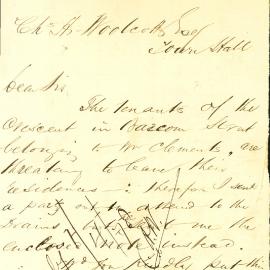 Chs H. Woolcott Esq
Town Hall
Dear Sir
The tenants of the
Crescent in Barcom Street
belonging to Mr Clements, are
threating to leave their
residences – therefore I send
a party out to attend to the
drains me the
enclosed note instead.
you kindly put this